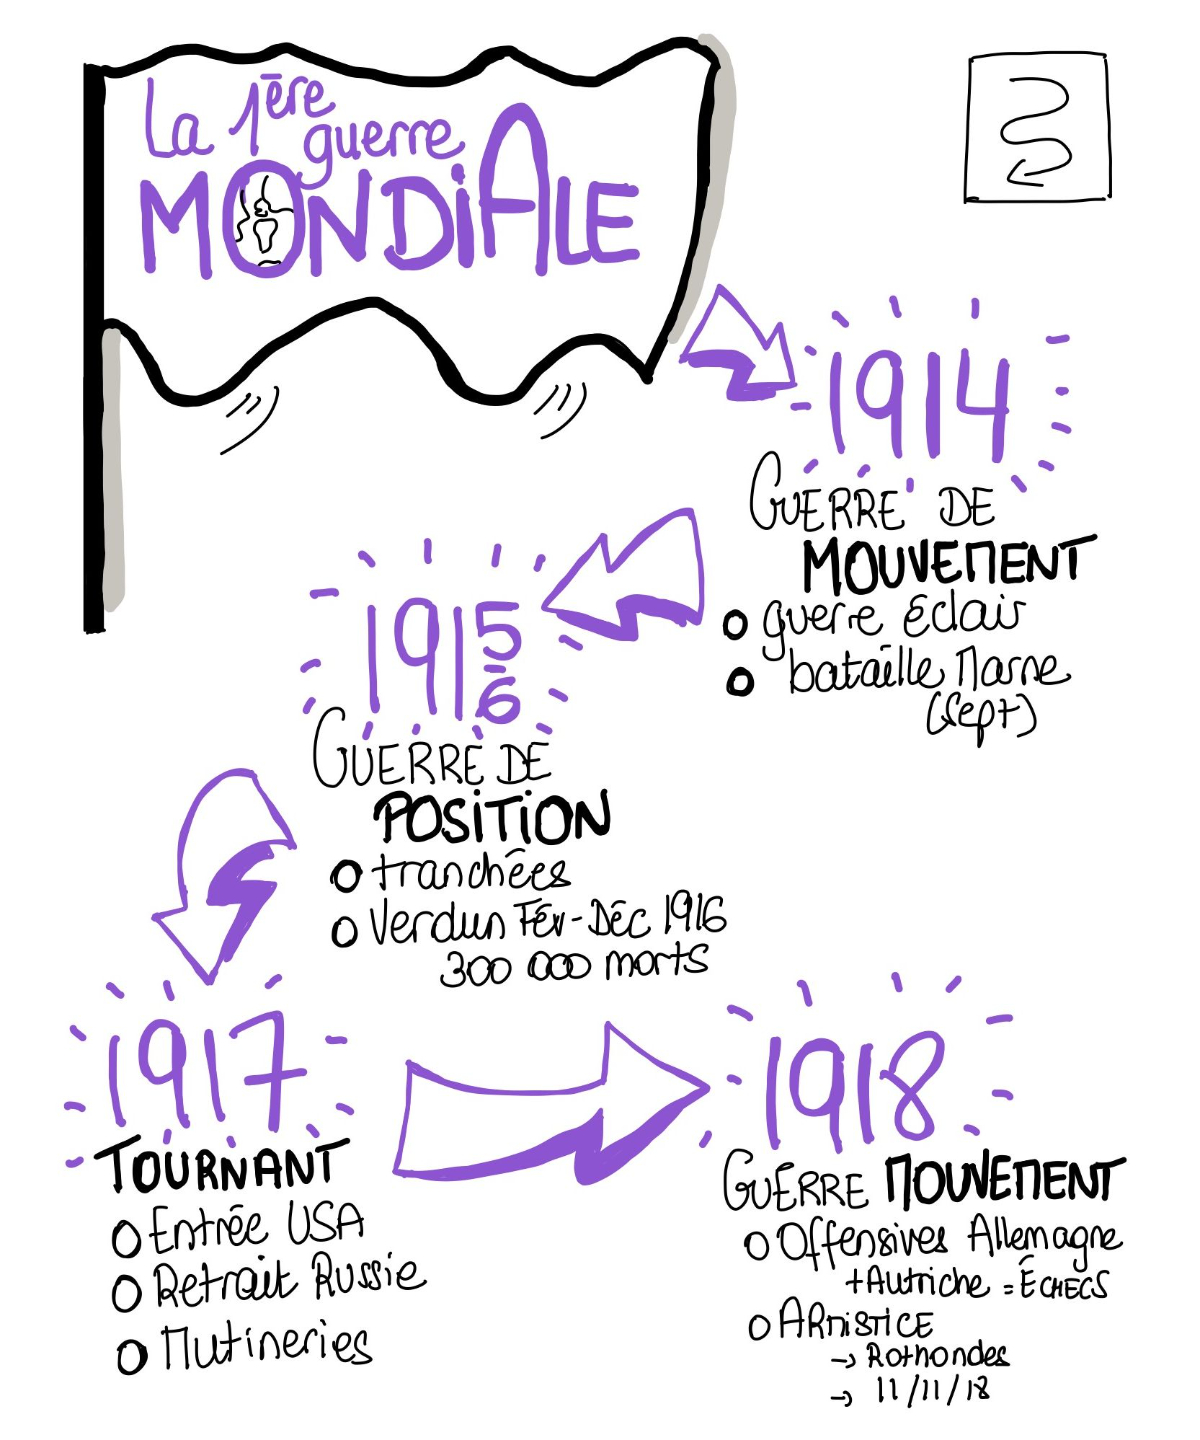 La 1ère
guerre
MONDIALE
1914
GUERRE DE
MOUVEMENT
guerre éclair
bataille Marne
(Sept)
1915
6
GUERRE DE
POSITION
tranchées
Verdun Fév-Déc 1916
300 000 morts
1917
TOURNANT
Entrée USA
Retrait Russie
Mutineries
1918
GUERRE MOUVEMENT
Offensives Allemagne
+ Autriche = ÉCHECS
ARMISTICE
→ Rothondes
→ 11/11/18